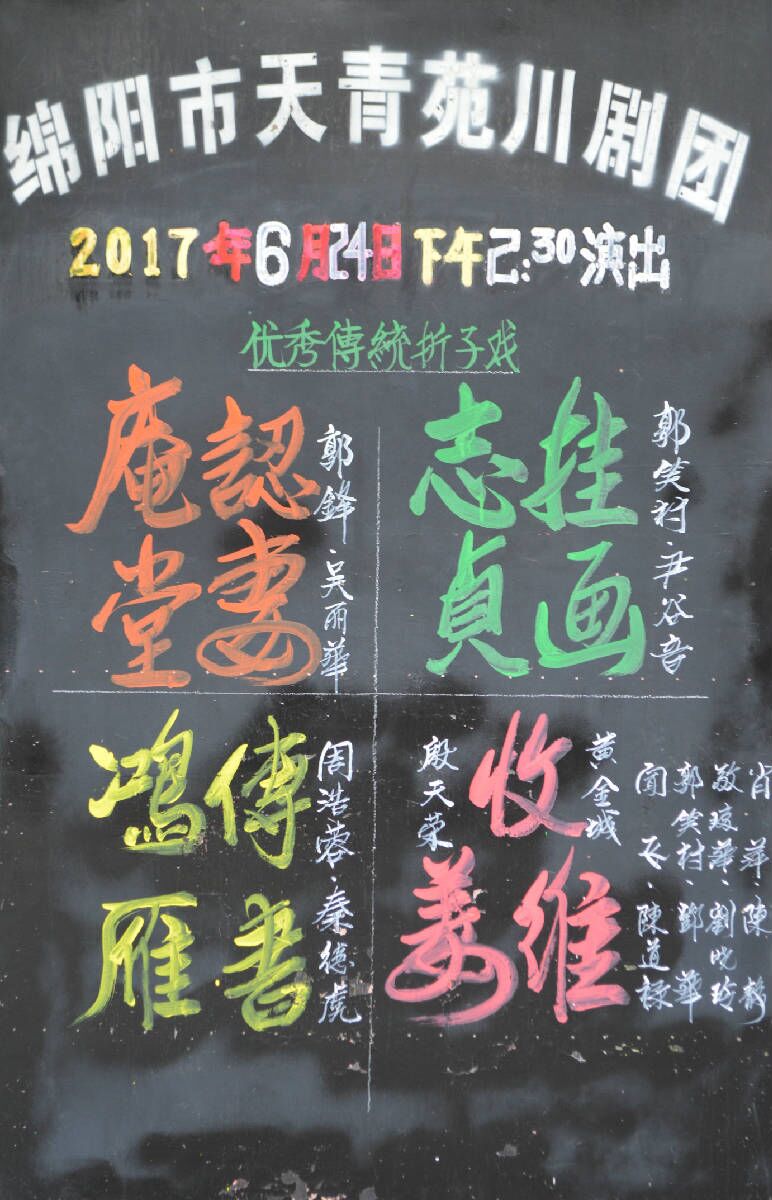 绵阳市天青苑川剧团
2017年6月24日下午2:30演出
优秀傳統折子戏
庵堂
認妻
郭鋒·吴丽華
志貞
挂画
郭笑村·尹谷音
鸿雁
傳書
周浩蓉·秦德虎
殷天荣
收
姜维
黄金城
郭笑村·鄧華
肖萍·陳静